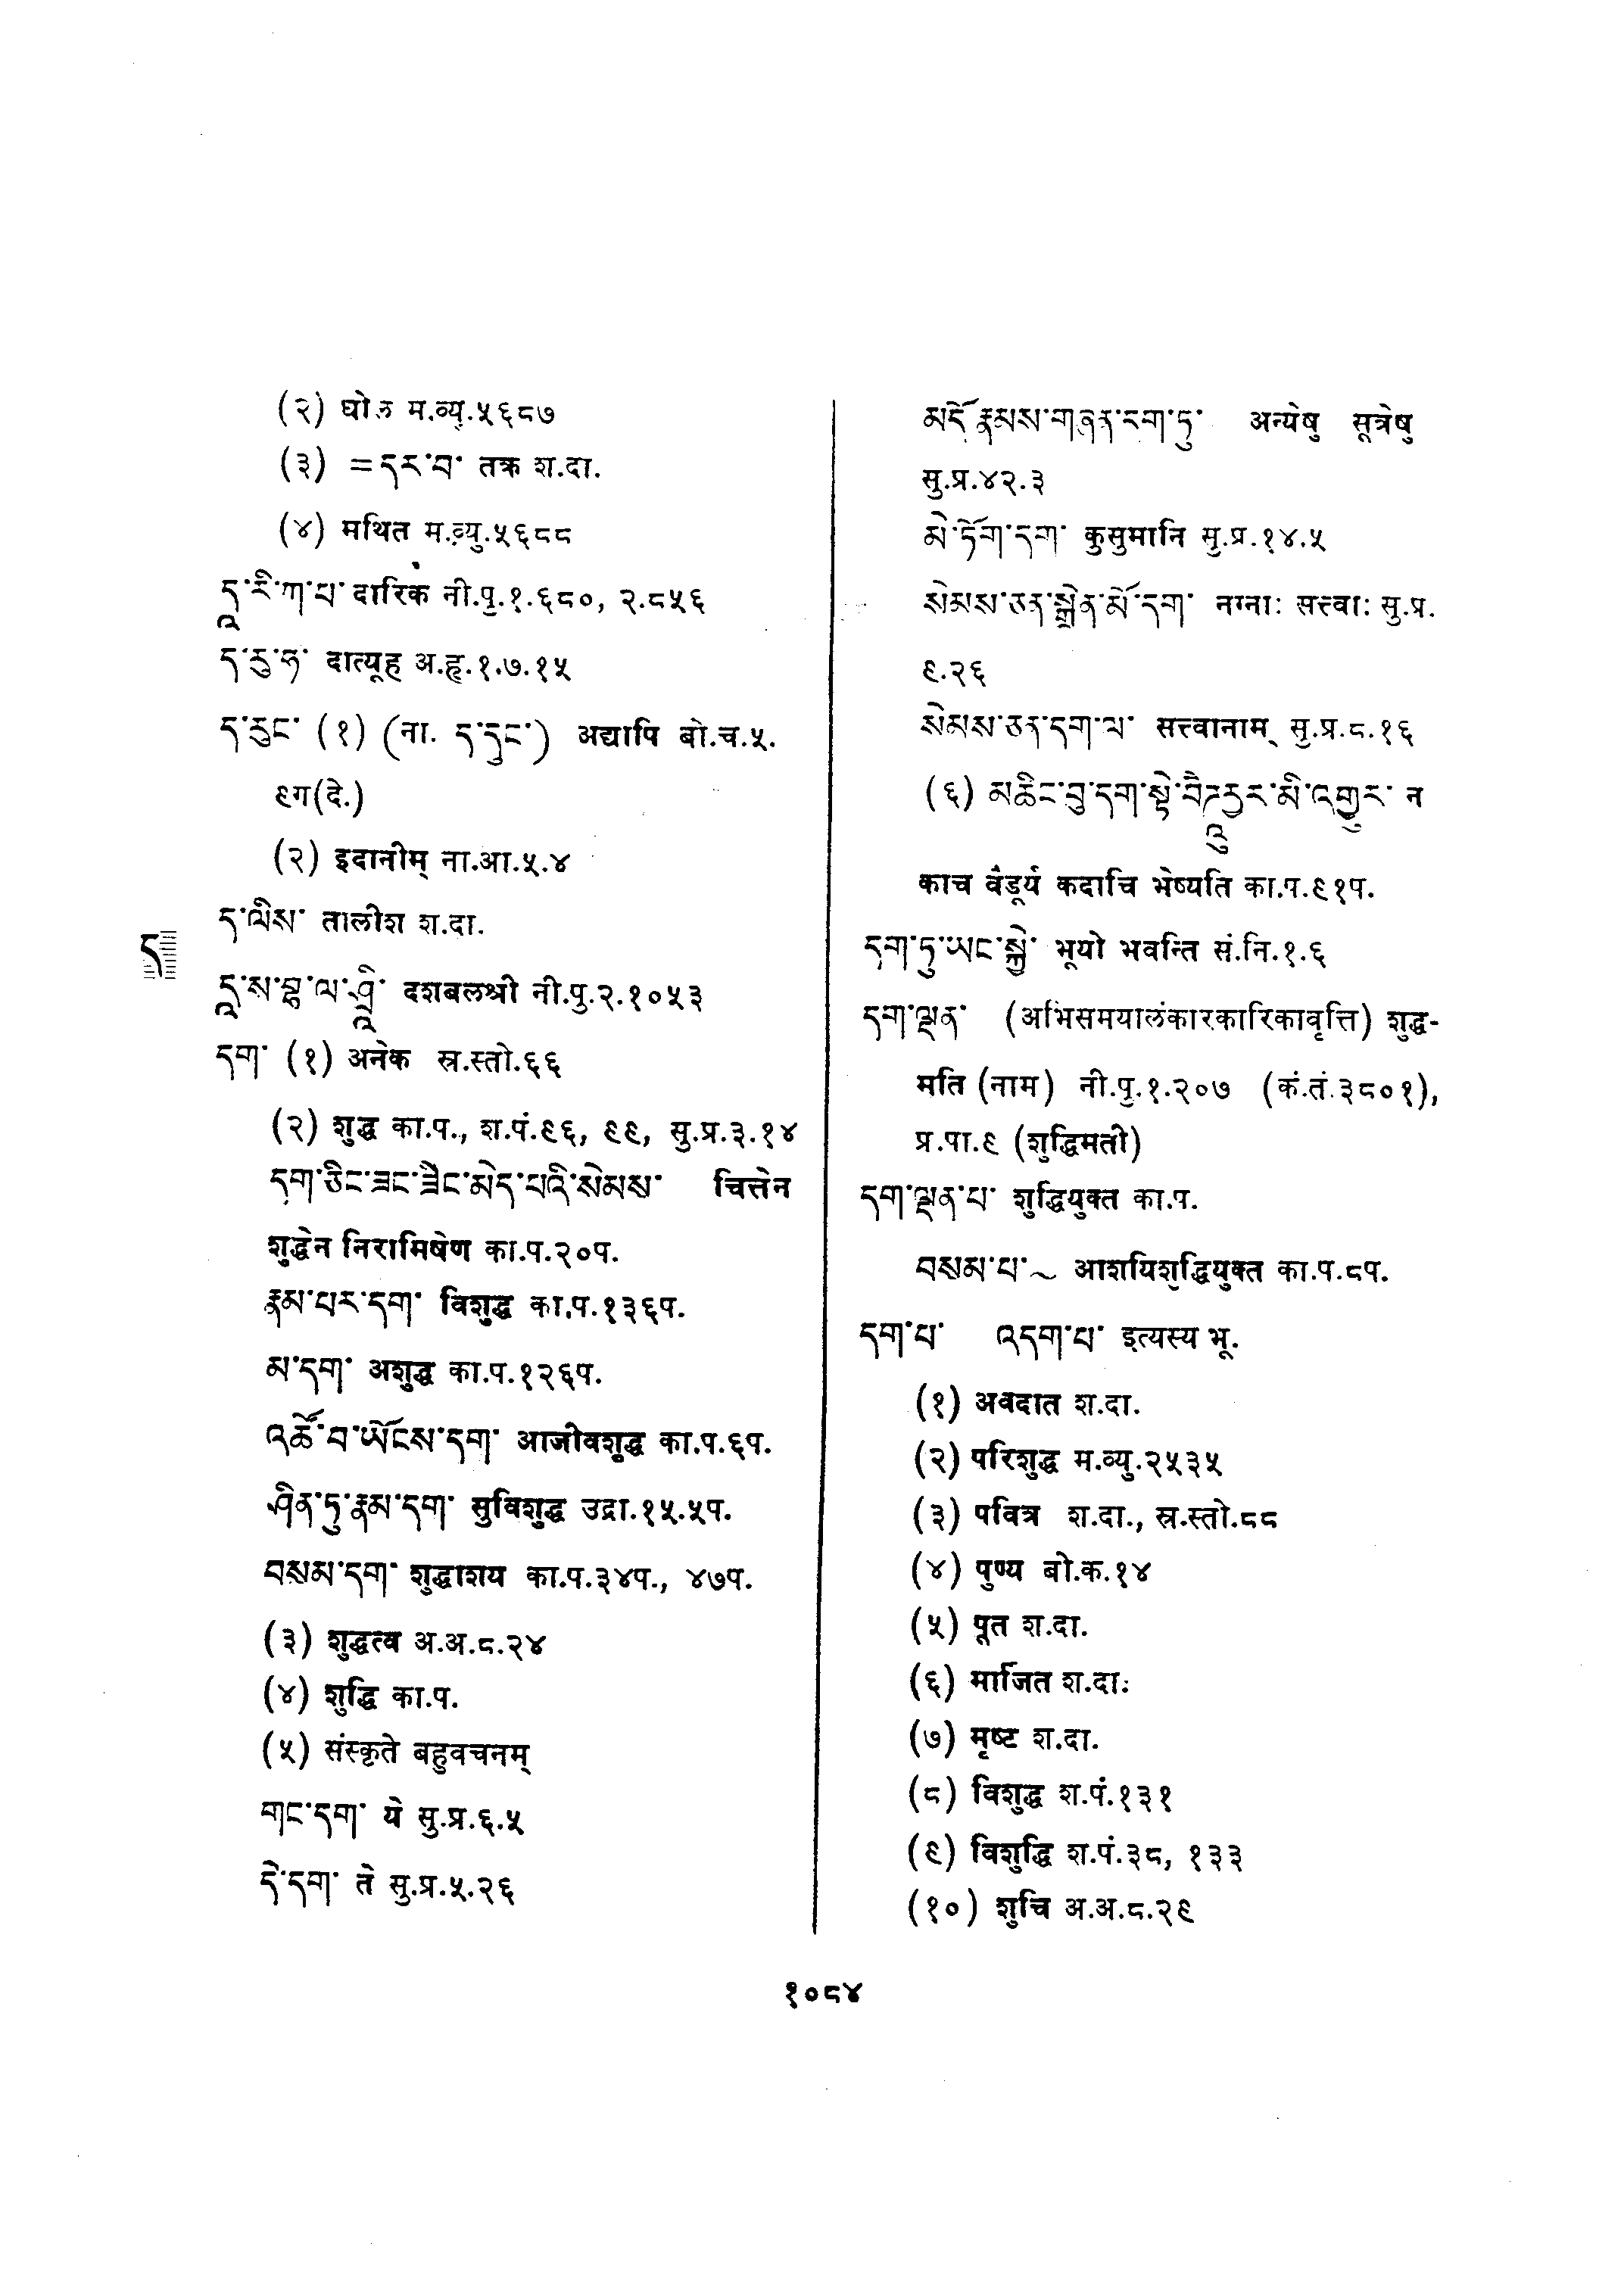 (२) घोल म.व्यु.५६८७
(३) =དར་བ་ तक्र श.दा.
(४) मथित म.व्यु.५६८८
དཱ་རི་ཀ་པ་ दारिक नी.पु.१.६८०, २.८५६
ད་རུ་ཧ་ दात्यूह अ.हृ.१.७.१५
ད་རུང་ (१) (ना. ད་དུང་) अद्यापि बो.च.५.
९ग(दे.)
(२) इदानीम् ना.आ.५.४
ད་ལིས་ तालीश श.दा.
ད
དཱ་ས་བྷ་ལ་ཤྲཱི་ दशबलश्री नी.पु.२.१०५३
དག་ (१) अनेक स्र.स्तो.६६
(२) शुद्ध का.प., श.पं.९६, ९९, सु.प्र.३.१४
དག་ཅིང་ཟང་ཟིང་མེད་པའི་སེམས་ चित्तेन
शुद्धेन निरामिषेण का.प.२०प.
རྣམ་པར་དག་ विशुद्ध का.प.१३६प.
མ་དག་ अशुद्ध का.प.१२६प.
འཚོ་བ་ཡོངས་དག་ आजीवशुद्ध का.प.६प.
ཤིན་ཏུ་རྣམ་དག་ सुविशुद्ध उद्रा.१५.५प.
བསམ་དག་ शुद्धाशय का.प.३४प., ४७प.
(३) शुद्धत्व अ.अ.८.२४
(४) शुद्धि का.प.
(५) संस्कृते बहुवचनम्
གང་དག་ ये सु.प्र.६.५
དེ་དག་ ते सु.प्र.५.२६
མདོ་རྣམས་གཞན་དག་ཏུ་ अन्येषु सूत्रेषु
सु.प्र.४२.३
མེ་ཏོག་དག་ कुसुमानि सु.प्र.१४.५
སེམས་ཅན་སྒྲེན་མོ་དག་ नग्नाः सत्त्वाः सु.प्र.
९.२६
སེམས་ཅན་དག་ལ་ सत्त्वानाम् सु.प्र.८.१६
(६) མཆིང་བུ་དག་སྟེ་བཻཌཱུརྱར་མི་འགྱུར་ न
काच वैडूर्य कदाचि भेष्यति का.प.९१प.
དག་ཏུ་ཡང་སྐྱེ་ भूयो भवन्ति सं.नि.१.६
དག་ལྡན་ (अभिसमयालंकारकारिकावृत्ति) शुद्ध-
मति (नाम) नी.पु.१.२०७ (कं.तं.३८०१),
प्र.पा.९ (शुद्धिमती)
དག་ལྡན་པ་ शुद्धियुक्त का.प.
བསམ་པ་~ आशयिशुद्धियुक्त का.प.८प.
དག་པ་ འདག་པ་ इत्यस्य भू.
(१) अवदात श.दा.
(२) परिशुद्ध म.व्यु.२५३५
(३) पवित्र श.दा., स्र.स्तो.८८
(४) पुण्य बो.क.१४
(५) पूत श.दा.
(६) मार्जित श.दा.
(७) मृष्ट श.दा.
(८) विशुद्ध श.पं.१३१
(९) विशुद्धि श.पं.३८, १३३
(१०) शुचि अ.अ.८.२९
१०८४